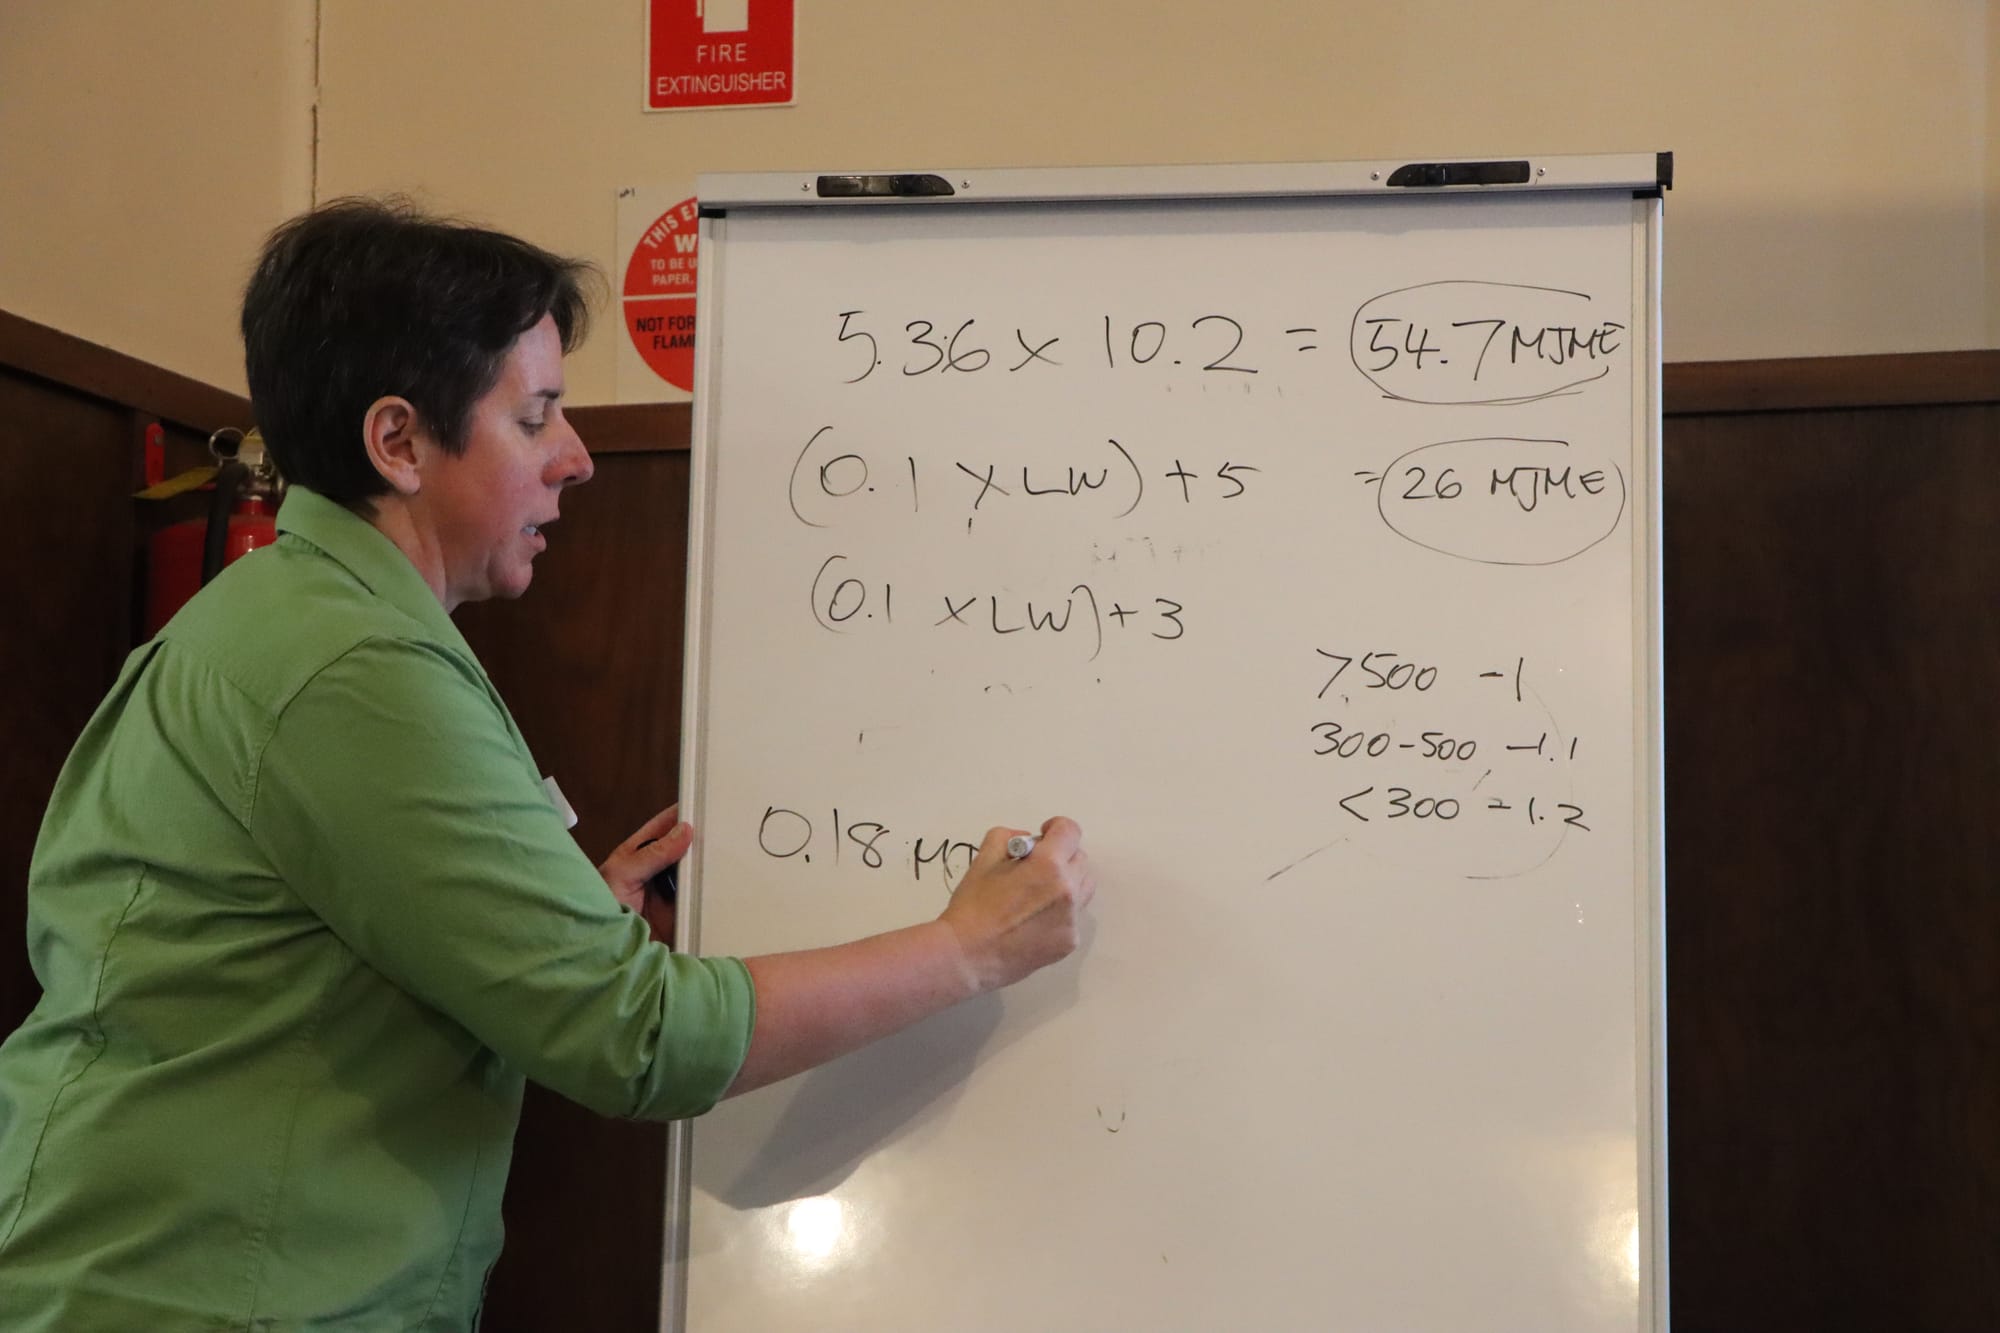 FIRE
EXTINGUISHER
THIS
TO BE
PAPER,
NOT FOR
5.36 x 10.2 = 54.7 MJME
(0.1 x LW) + 5 = 26 MJME
(0.1 x LW) + 3
>500 - 1
300-500 - 1.1
<300 - 1.2
0.18 MJ